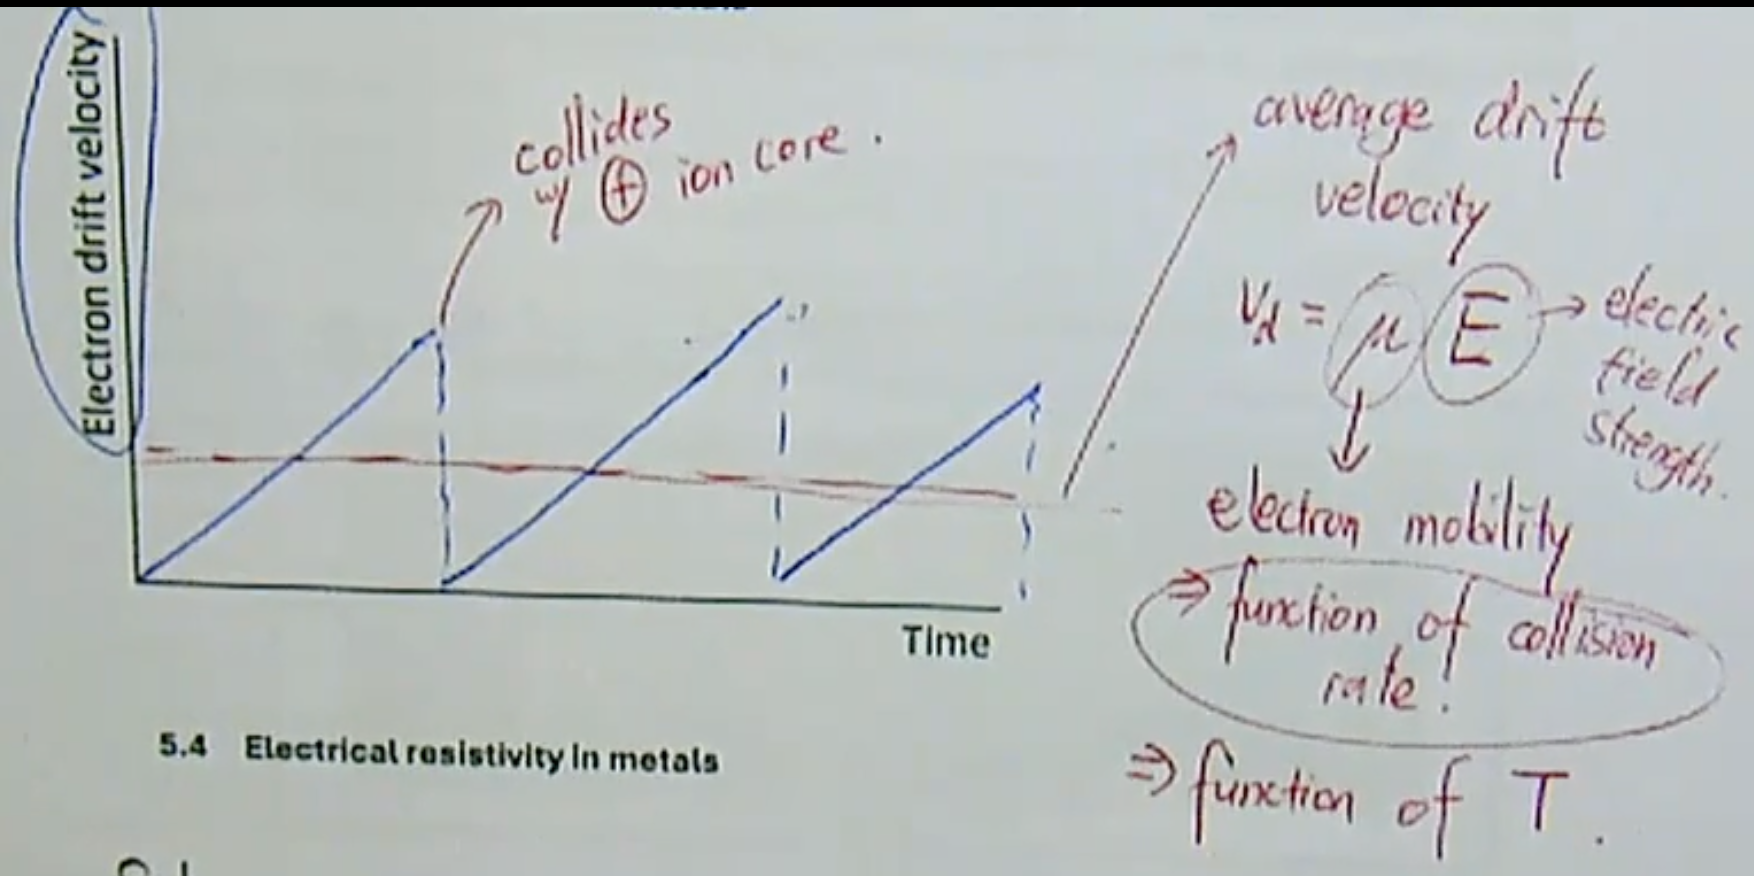 Electron drift velocity
collides
w/ ⊕ ion core.
average drift
velocity
Vd = μ E → electric
field
strength.
electron mobility
⇒ function of collision
rate!
Time
5.4 Electrical resistivity in metals
⇒ function of T.